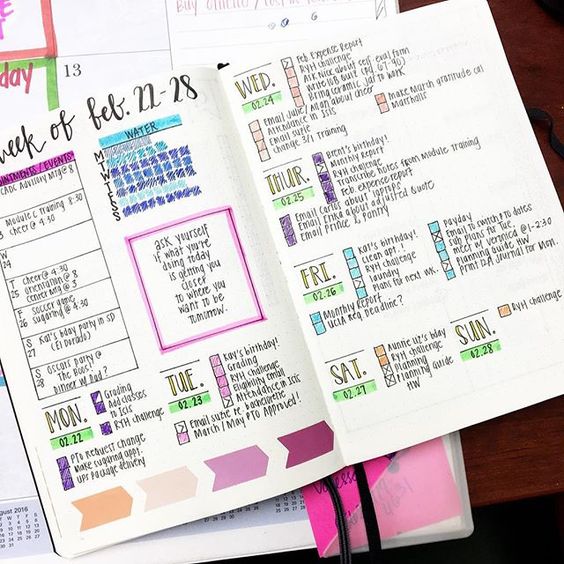 day
13
week of feb. 22-28
APPOINTMENTS/EVENTS
CADC Advisory Mtg @ 8
Module C Training 8:30
cheer @ 4:30
W
24
T
25
cheer @ 4:30
orientation @ 8
center mtg @ 3
F
26
soccer game
sugaring @ 4:30
S
27
Kat's bday party in SD
(El Dorado)
S
28
Oscars party @
The Boos!
Dinner w/ Dad?
WATER
M
T
W
T
F
S
S
ask yourself
if what you're
doing today
is getting you
closer
to where you
want to be
tomorrow.
MON.
02.22
Grading
add classes
to Isis
RYH challenge
PTO Request change
Make sugaring appt.
UPS package delivery
TUE.
02.23
Kay's birthday!
Grading
RYH challenge
Eligibility email
Attendance in Isis
Email Suzie re
March/May PTO Approved!
WED.
02.24
Feb Expense Report
RYH challenge
self eval form
Bring ceramic jar to work
Email Julie/Alan about cheer
Attendance in Isis
Email Suzie
change 3/1 Training
Make March gratitude cal
Marshalls
THUR.
02.25
Bren's birthday!
Monthly report
RYH challenge
Transcribe notes from module training
Feb. expense report
Email Chris about laptops
Email Erika about adjusted quote
Email Prince is Pantry
FRI.
02.26
Kat's birthday!
clean apt.!
RYH challenge
laundry
Plans for next wk.
Monthly Report
UCLA Req. Deadline?
payday
Email to switch to dates
sub plans for Tue.
meet w/ Veronica @ 1-2:30
Planning Guide HW
Print I/A Journal for Mon.
SAT.
02.27
Auntie Liz's bday
RYH challenge
Planning
Planning Guide
HW
SUN.
02.28
RYH challenge
August 2016